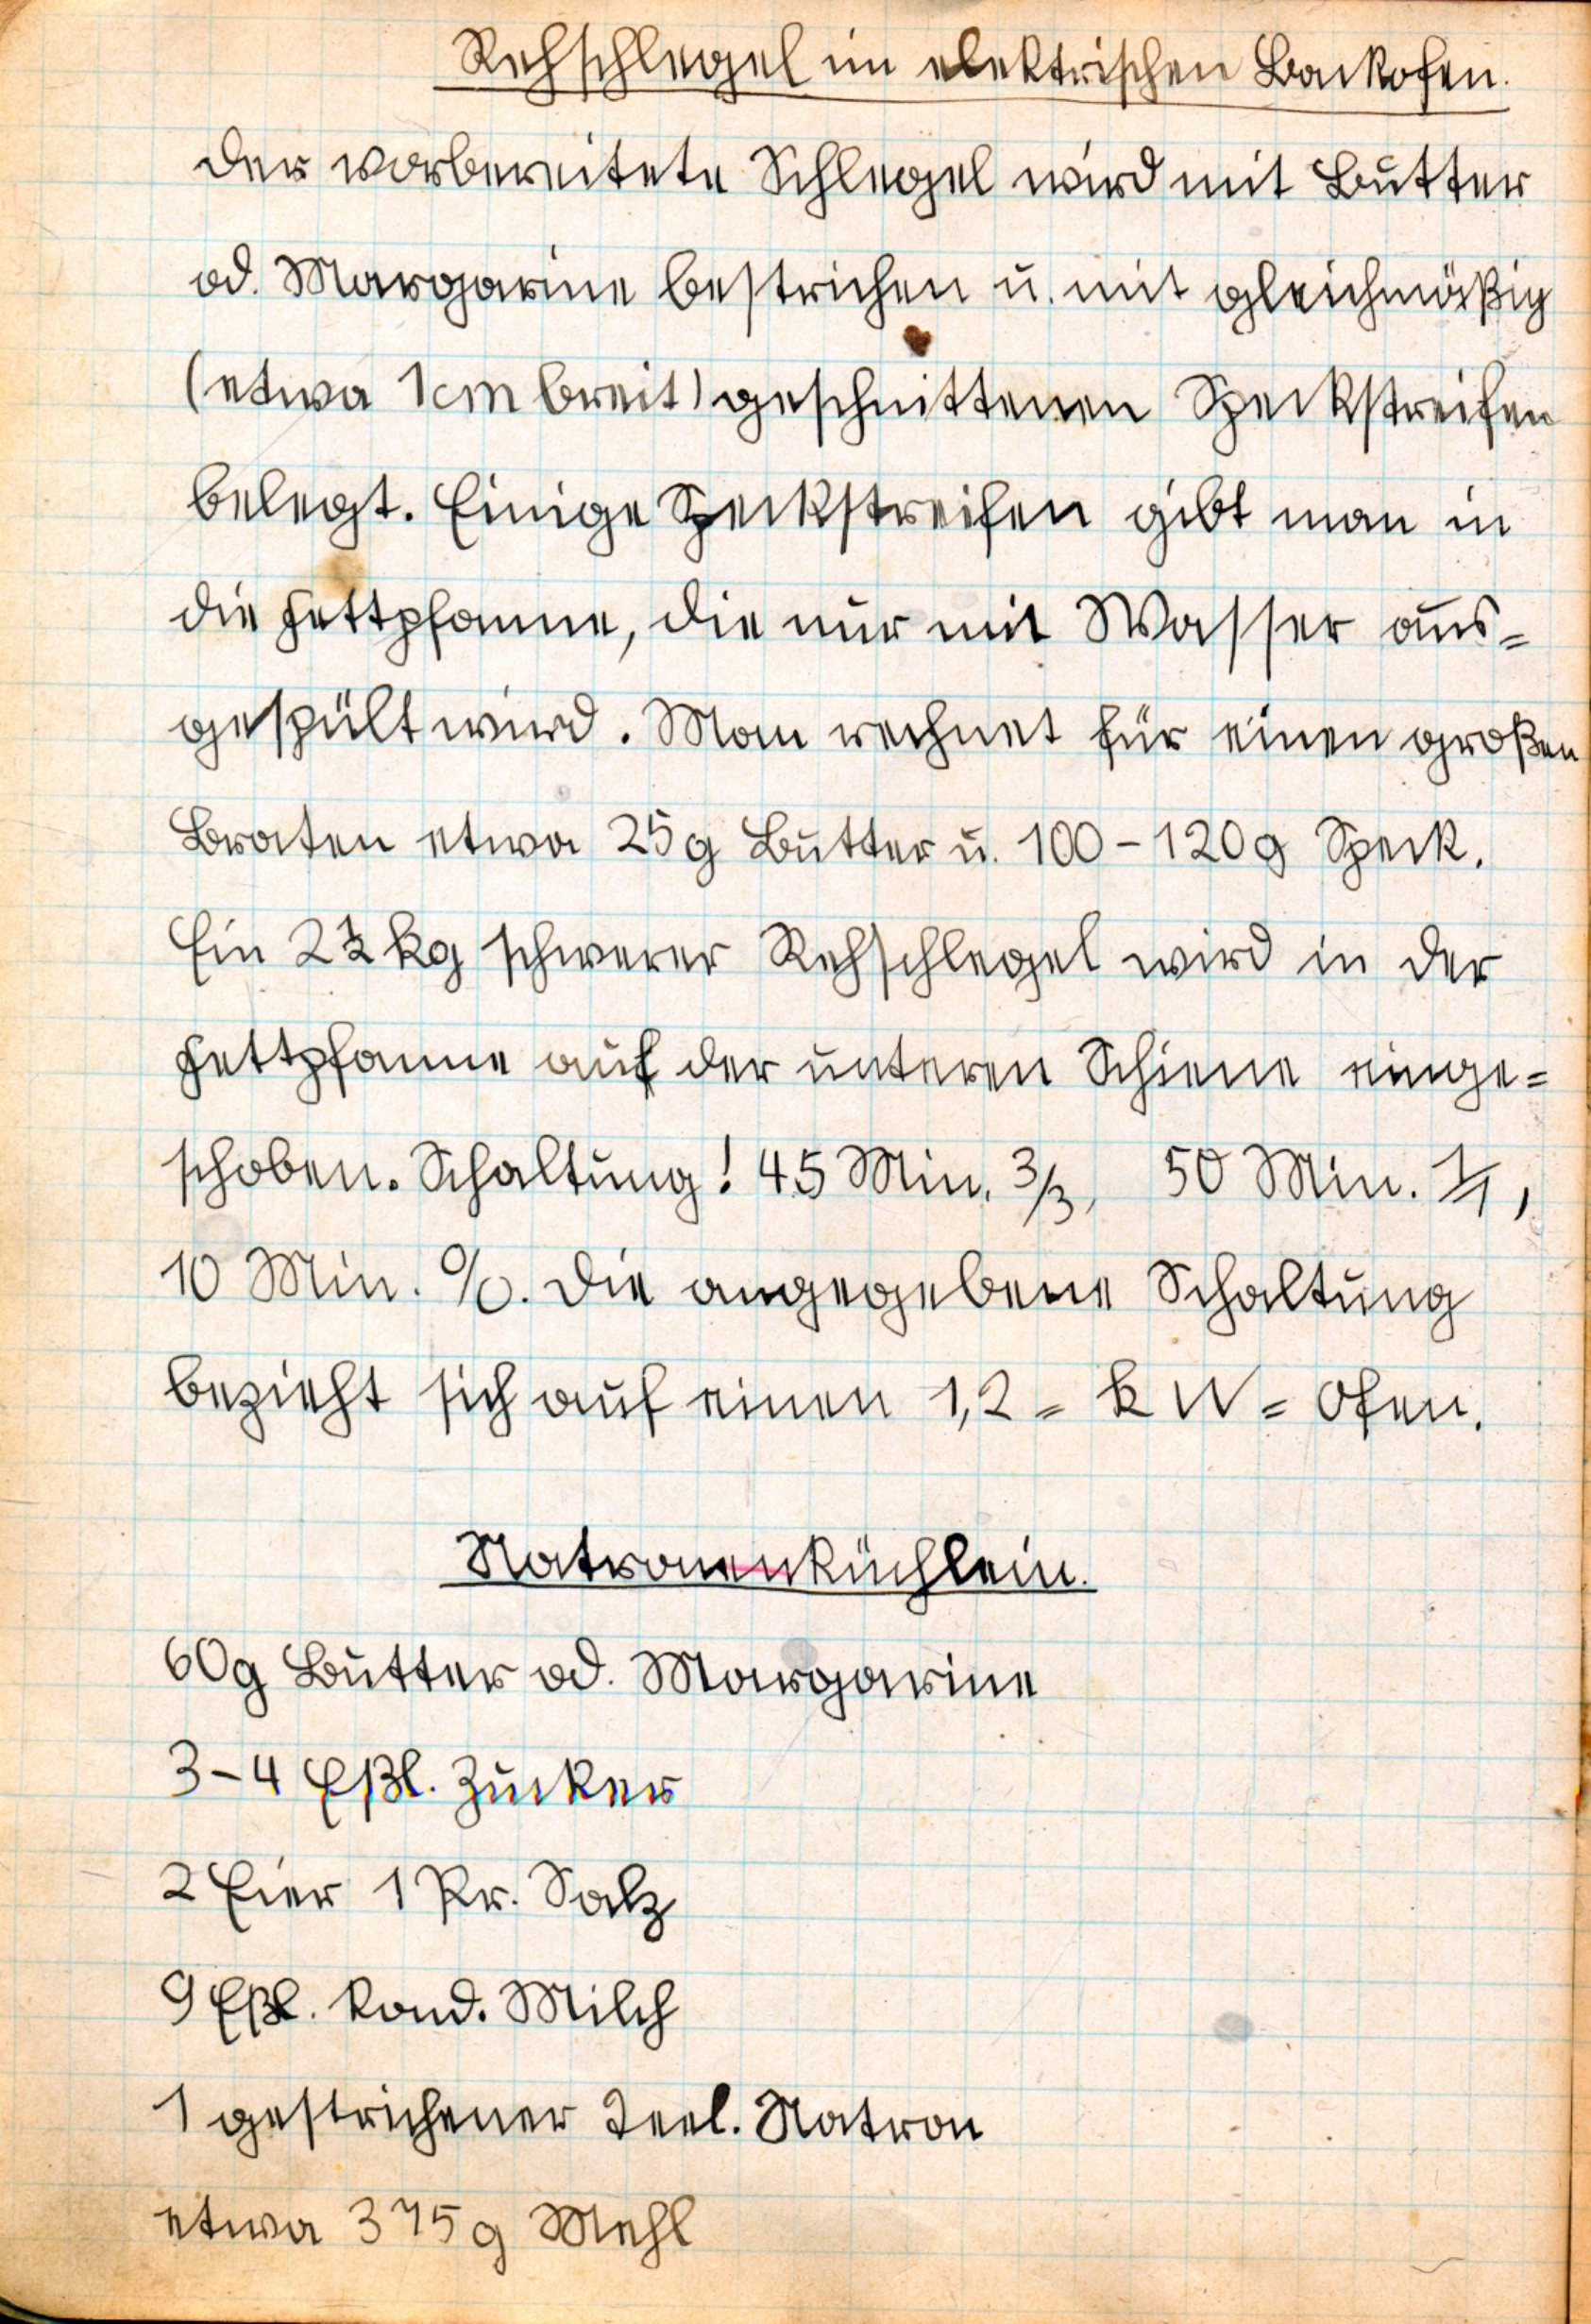 Rehschlegel im elektrischen Backofen.
Der vorbereitete Schlegel wird mit Butter
od. Margarine bestrichen u. mit gleichmäßig
(etwa 1 cm breit) geschnittenen Speckstreifen
belegt. Einige Speckstreifen gibt man in
die Fettpfanne, die nur mit Wasser aus=
gespült wird. Man rechnet für einen großen
Braten etwa 25 g Butter u. 100 - 120 g Speck.
Ein 2 ½ kg schwerer Rehschlegel wird in der
Fettpfanne auf der unteren Schiene einge=
schoben. Schaltung! 45 Min. 3/3, 50 Min. 1/1,
10 Min. 0/0. Die angegebene Schaltung
bezieht sich auf einen 1,2 = kW = Ofen.
Natronenküchlein.
60 g Butter od. Margarine
3-4 Eßl. Zucker
2 Eier 1 Pr. Salz
9 Eßl. kond. Milch
1 gestrichener Teel. Natron
etwa 375 g Mehl